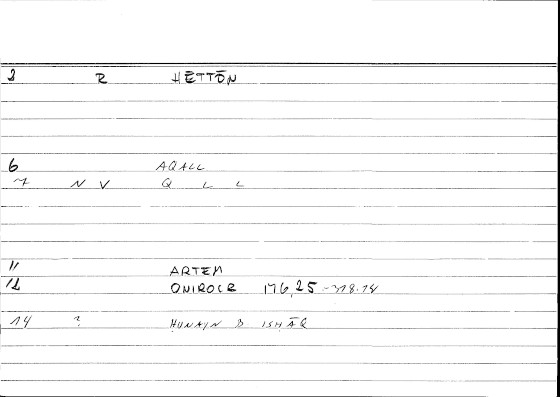 3 R HĒTTŌN
6 AQALL
7 N V Q L L
11 ARTEM
12 ONIROCR 176,25-178.14
14 ? ḤUNAYN B ISḤĀQ